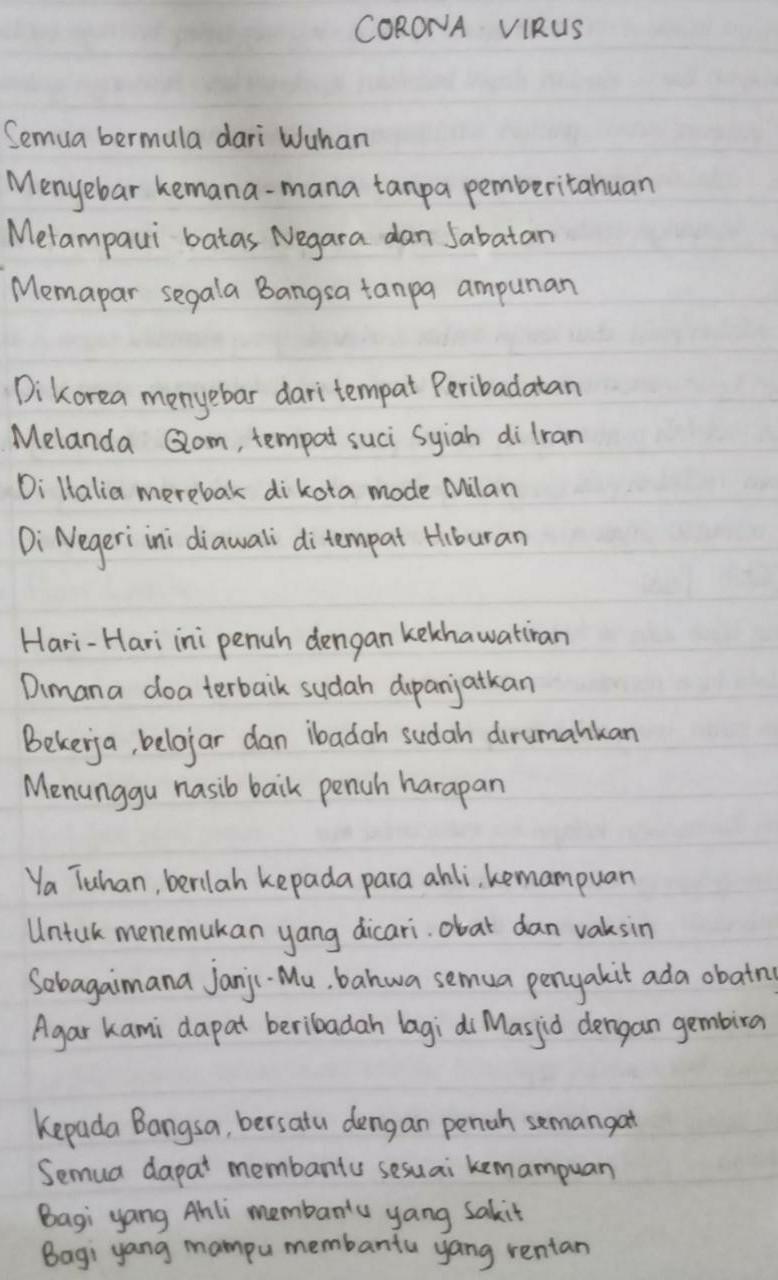 CORONA VIRUS
Semua bermula dari Wuhan
Menyebar kemana-mana tanpa pemberitahuan
Melampaui batas Negara dan Jabatan
Memapar segala Bangsa tanpa ampunan
Di Korea menyebar dari tempat Peribadatan
Melanda Qom, tempat suci Syiah di Iran
Di Italia merebak di kota mode Milan
Di Negeri ini diawali di tempat Hiburan
Hari-Hari ini penuh dengan kekhawatiran
Dimana doa terbaik sudah dipanjatkan
Bekerja, belajar dan ibadah sudah dirumahkan
Menunggu nasib baik penuh harapan
Ya Tuhan, berilah kepada para ahli, kemampuan
Untuk menemukan yang dicari. obat dan vaksin
Sebagaimana janji-Mu, bahwa semua penyakit ada obatny
Agar kami dapat beribadah lagi di Masjid dengan gembira
Kepada Bangsa, bersatu dengan penuh semangat
Semua dapat membantu sesuai kemampuan
Bagi yang Ahli membantu yang sakit
Bagi yang mampu membantu yang rentan